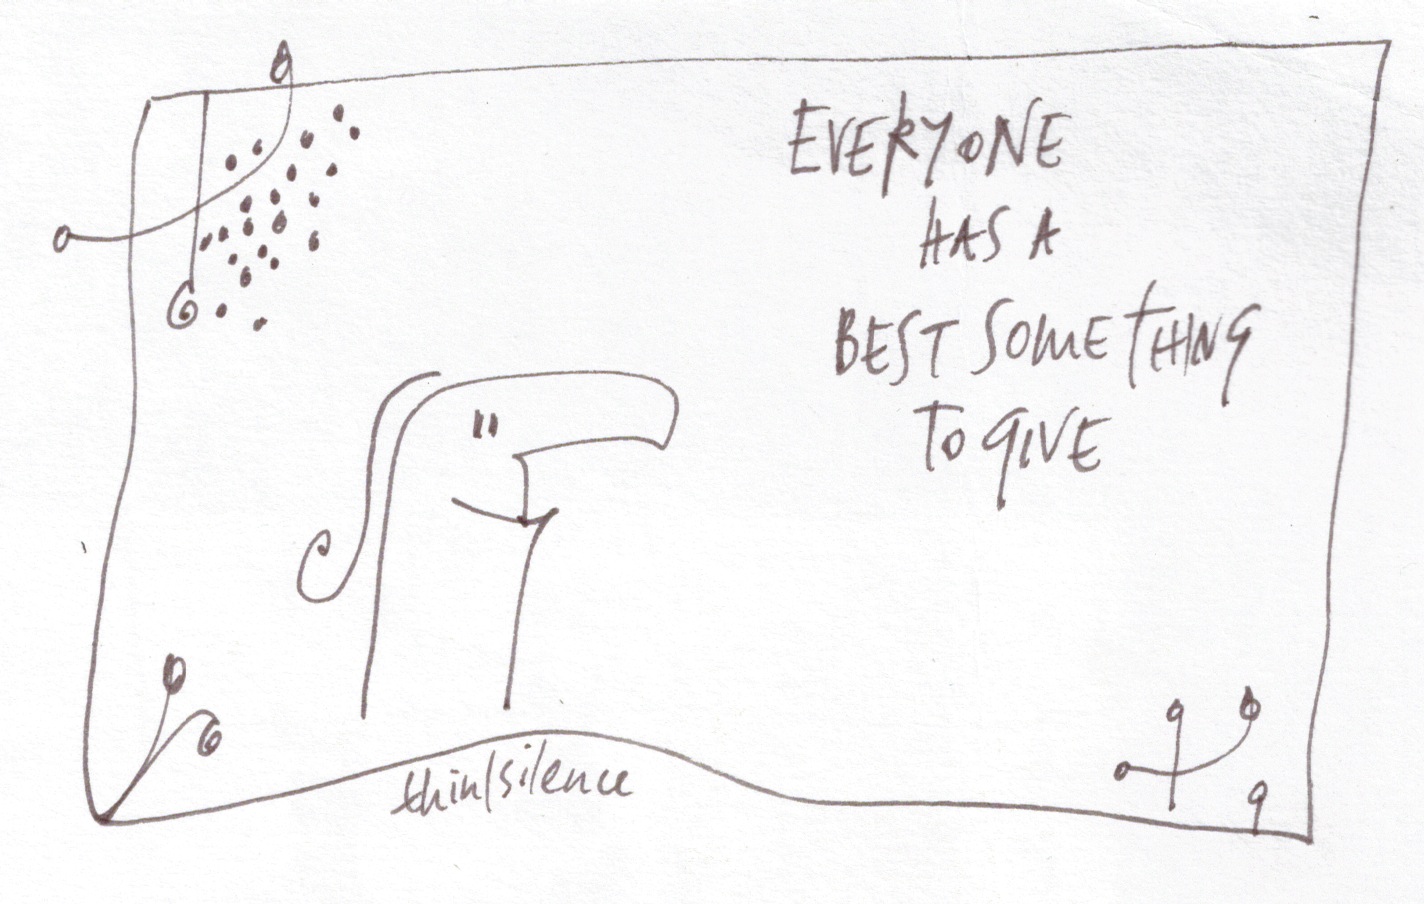 EVERYONE
HAS A
BEST SOMETHING
TO GIVE
thin/silence